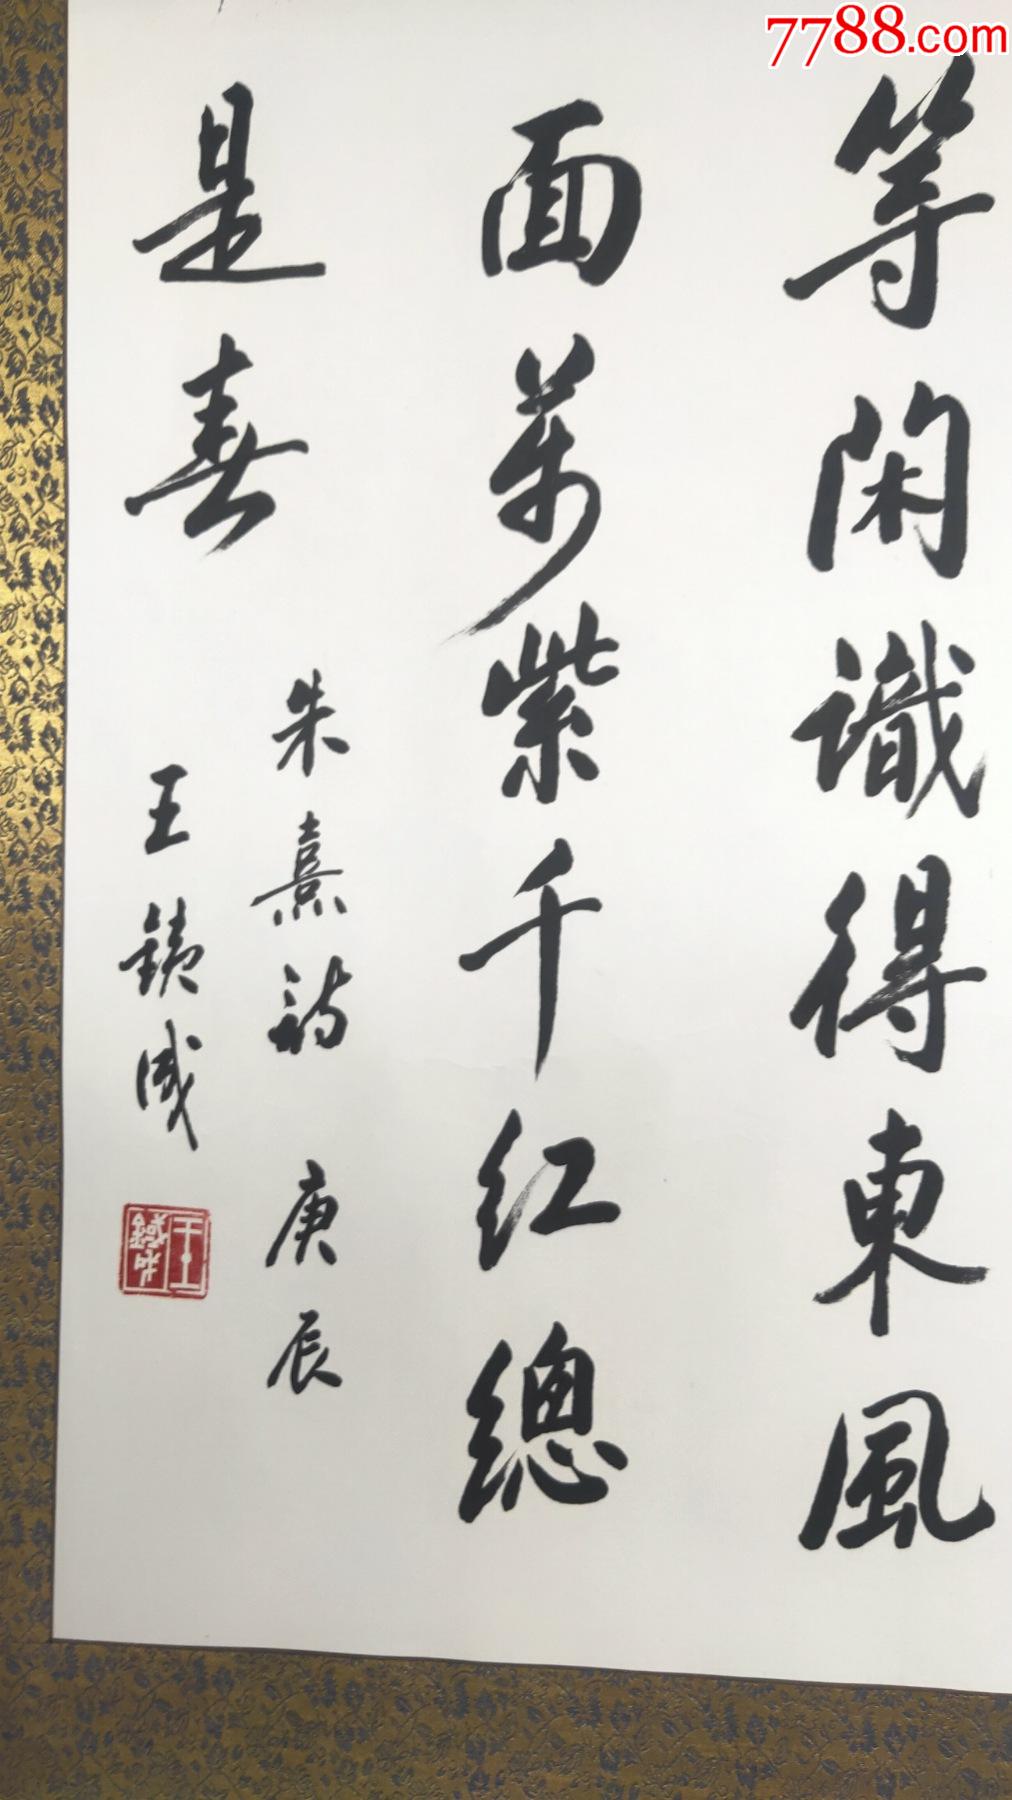 7788.com
等闲識得東風
面萬紫千红總
是春
朱熹詩 庚辰
王鐵成
王鐵成